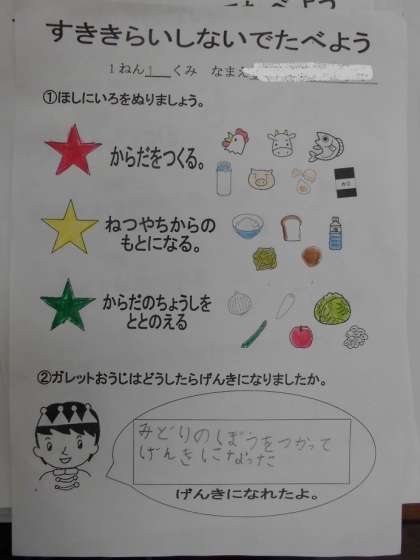 すききらいしないでたべよう
1ねん1 くみ なまえ
①ほしにいろをぬりましょう。
からだをつくる。
ねつやちからの
もとになる。
からだのちょうしを
ととのえる
②ガレットおうじはどうしたらげんきになりましたか。
みどりのぼうをつかって
げんきになった
げんきになれたよ。